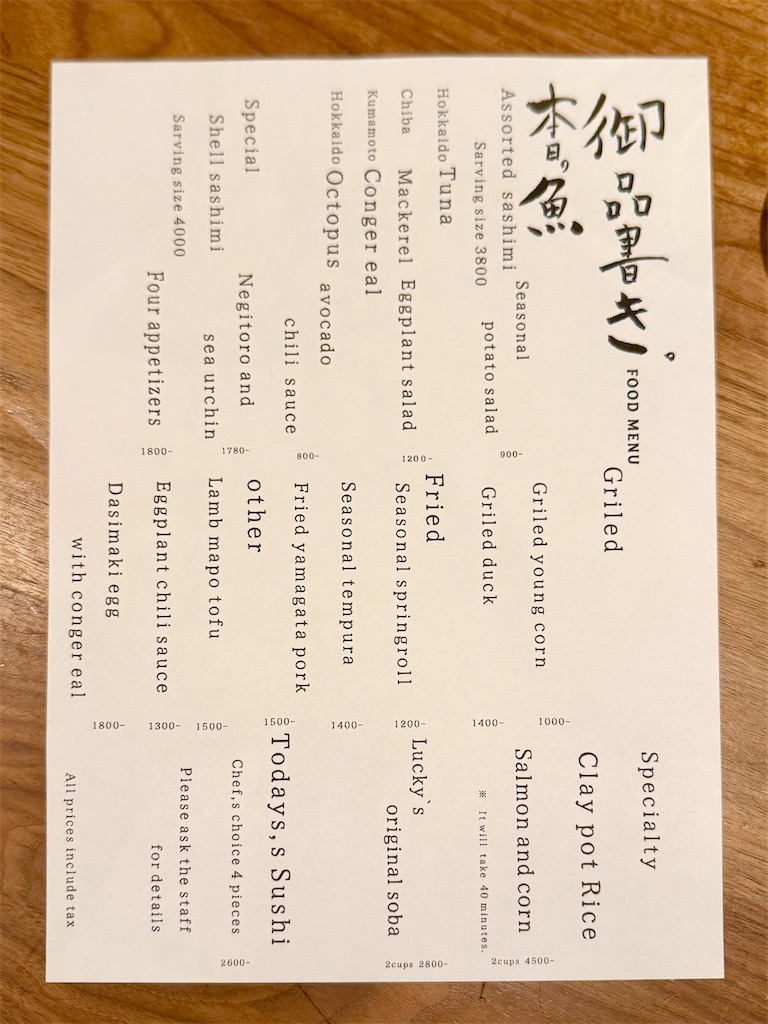 御品書キ。
FOOD MENU
本日の魚
Assorted sashimi
Sarving size 3800
Hokkaido Tuna
Chiba Mackerel
Kumamoto Conger eal
Hokkaido Octopus
Special
Shell sashimi
Sarving size 4000
Seasonal
potato salad
900-
Eggplant salad
1200-
avocado
chili sauce
800-
Negitoro and
sea urchin
1780-
Four appetizers
1800-
Griled
Griled young corn
1000-
Griled duck
1400-
Fried
Seasonal springroll
1200-
Seasonal tempura
1400-
Fried yamagata pork
1500-
other
Lamb mapo tofu
1500-
Eggplant chili sauce
1300-
Dasimaki egg
with conger eal
1800-
Specialty
Clay pot Rice
Salmon and corn
2cups 4500-
※ It will take 40 minutes.
Lucky`s
original soba
2cups 2800-
Todays,s Sushi
Chef,s choice 4 pieces
2600-
Please ask the staff
for details
All prices include tax